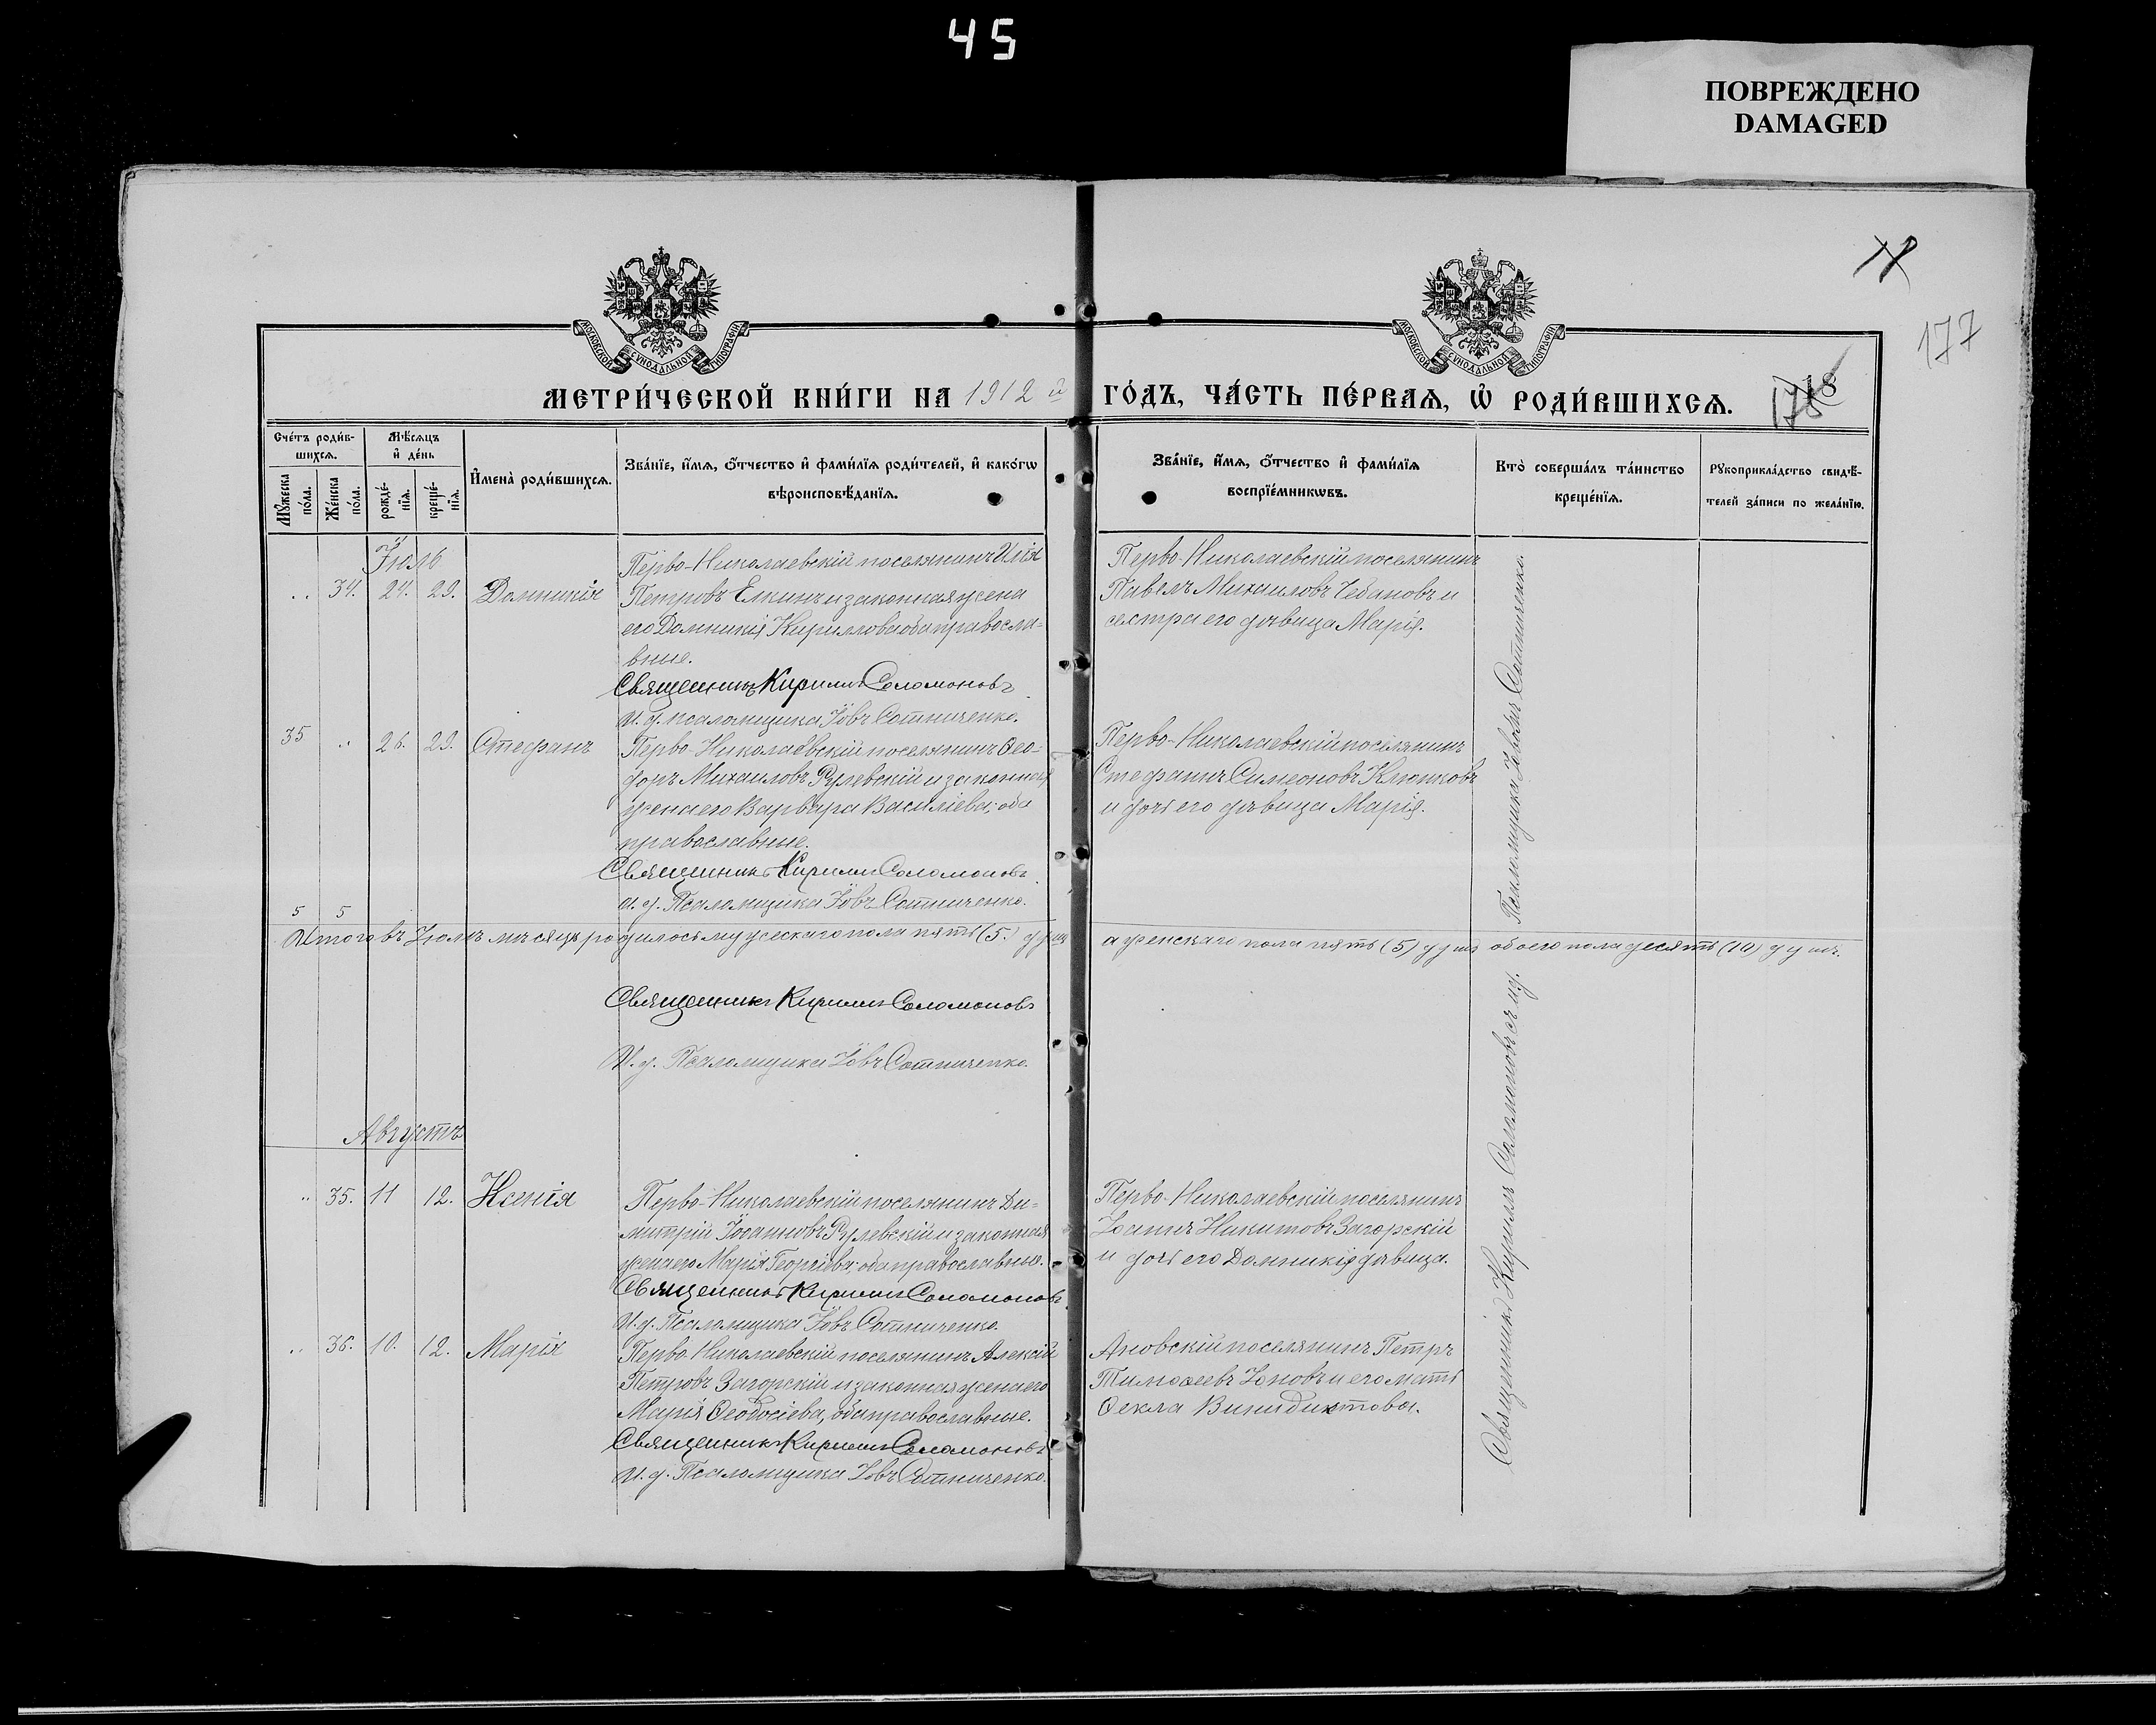 45
ПОВРЕЖДЕНО
DAMAGED
18
177
МОСКОВСКОЙ СѴНОДАЛЬНОЙ ТИПОГРАФІИ
МОСКОВСКОЙ СѴНОДАЛЬНОЙ ТИПОГРАФІИ
МЕТРИ́ЧЕСКОЙ КНИ́ГИ НА 1912 й ГО́ДЪ, ЧА́СТЬ ПЕ́РВАѦ, Ѡ҆ РОДИ́ВШИХСѦ.
178
Сче́тъ роди́в-
шихсѧ.
Мѣ́сѧцъ
и҆ де́нь
Мꙋ́жеска
по́ла.
Же́нска
по́ла.
рожде́-
нїѧ.
креще́-
нїѧ.
И҆мена̀ роди́вшихсѧ.
Зва́нїе, и҆́мѧ, ѻ҆́тчество и҆ фами́лїѧ роди́телей, и҆ како́гѡ
вѣроисповѣ́данїѧ.
Зва́нїе, и҆́мѧ, ѻ҆́тчество и҆ фами́лїѧ
воспрїе́мникѡвъ.
Кто̀ соверша́лъ та́инство
креще́нїѧ.
Рꙋкоприкла́дство свидѣ́-
телей за́писи по жела́нїю.
Іюль
.. 34. 24. 29. Домникія
Перво-Николаевскій поселянинъ Илія
Петровъ Елкинъ и законная жена
его Домникія Кириллова оба правосла-
вные.
Священникъ Кириллъ Соломоновъ
И. д. псаломщика Іовъ Сотниченко.
Перво-Николаевскій поселянинъ
Павелъ Михаиловъ Чебановъ и
сестра его дѣвица Марія.
35 .. 26. 29. Стефанъ
Перво-Николаевскій поселянинъ Ѳео-
доръ Михаиловъ Рулевскій и законная
жена его Варвара Василіева; оба
православные.
Священникъ Кириллъ Соломоновъ
И. д. Псаломщика Іовъ Сотниченко.
Перво-Николаевскій поселянинъ
Стефанъ Симеоновъ Клюшковъ
и дочь его дѣвица Марія.
5 5
Итого въ Іюлѣ мѣсяцѣ родилось мужескаго пола пять (5.) душъ а женскаго пола пять (5) душъ обоего пола десять (10) душъ.
Священникъ Кириллъ Соломоновъ
И. д. Псаломщика Іовъ Сотниченко.
Августъ
.. 35. 11 12. Ксенія
Перво-Николаевскій поселянинъ Ди-
митрій Іоанновъ Рулевскій и законная
жена его Марія Георгіева; оба православные.
Священникъ Кириллъ Соломоновъ
И. д. Псаломщика Іовъ Сотниченко.
Перво-Николаевскій поселянинъ
Іоаннъ Никитовъ Загорскій
и дочь его Домникія дѣвица.
.. 36. 10. 12. Марія
Перво-Николаевскій поселянинъ Алексій
Петровъ Загорскій и законная жена его
Марія Ѳеодосіева, оба православные.
Священникъ Кириллъ Соломоновъ
И. д. Псаломщика Іовъ Сотниченко.
поселянинъ Петръ
Тимоѳеевъ Іоновъ и его мать
Ѳекла Винидиктова.
Священникъ Кириллъ Соломоновъ съ и.д. Псаломщика Іовомъ Сотниченко.